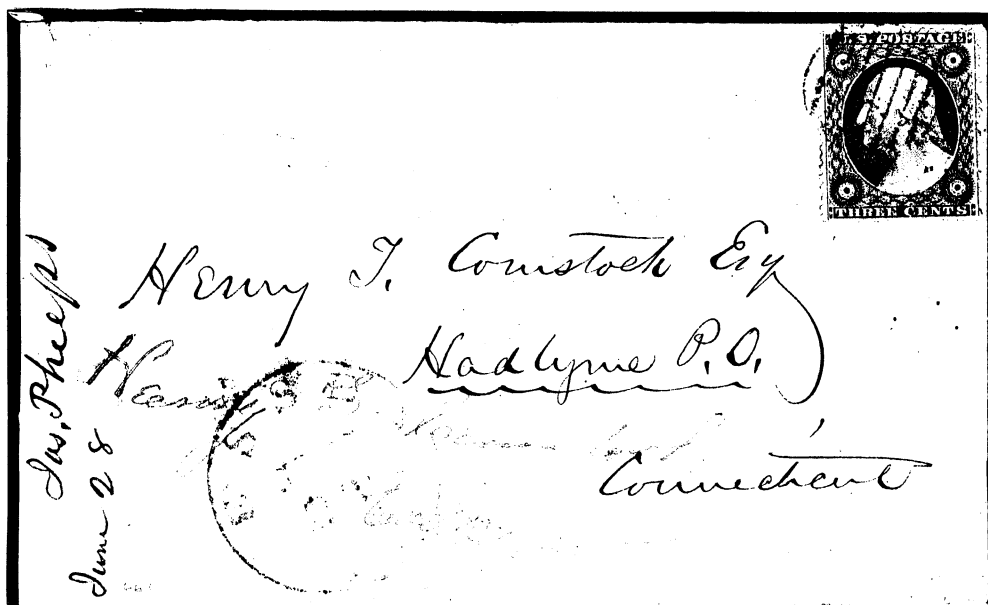 U.S. POSTAGE
THREE CENTS
Henry T. Comstock Esq
Hadlyme P.O.
Connecticut
Jas. Phelps
June 28